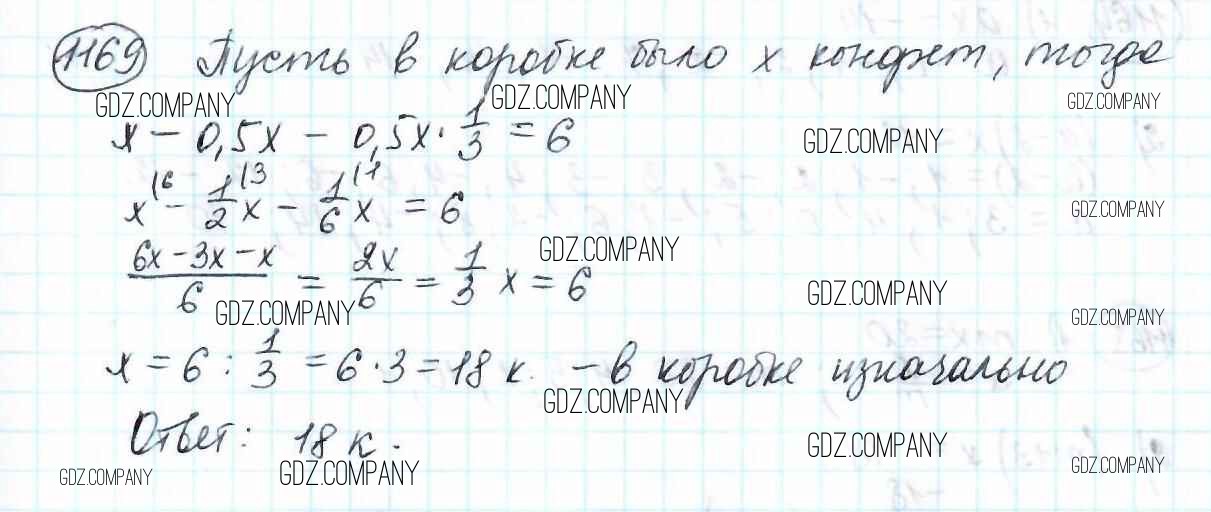 1169 Пусть в коробке было x конфет, тогда
GDZ.COMPANY GDZ.COMPANY GDZ.COMPANY
x - 0,5x - 0,5x · 1/3 = 6 GDZ.COMPANY
x^(6 - 1/2^(3 x - 1/6^(1 x = 6 GDZ.COMPANY
(6x - 3x - x)/6 = 2x/6 = 1/3 x = 6 GDZ.COMPANY
GDZ.COMPANY GDZ.COMPANY GDZ.COMPANY
x = 6 : 1/3 = 6 · 3 = 18 к. - в коробке изначально
GDZ.COMPANY
Ответ: 18 к. GDZ.COMPANY
GDZ.COMPANY GDZ.COMPANY GDZ.COMPANY